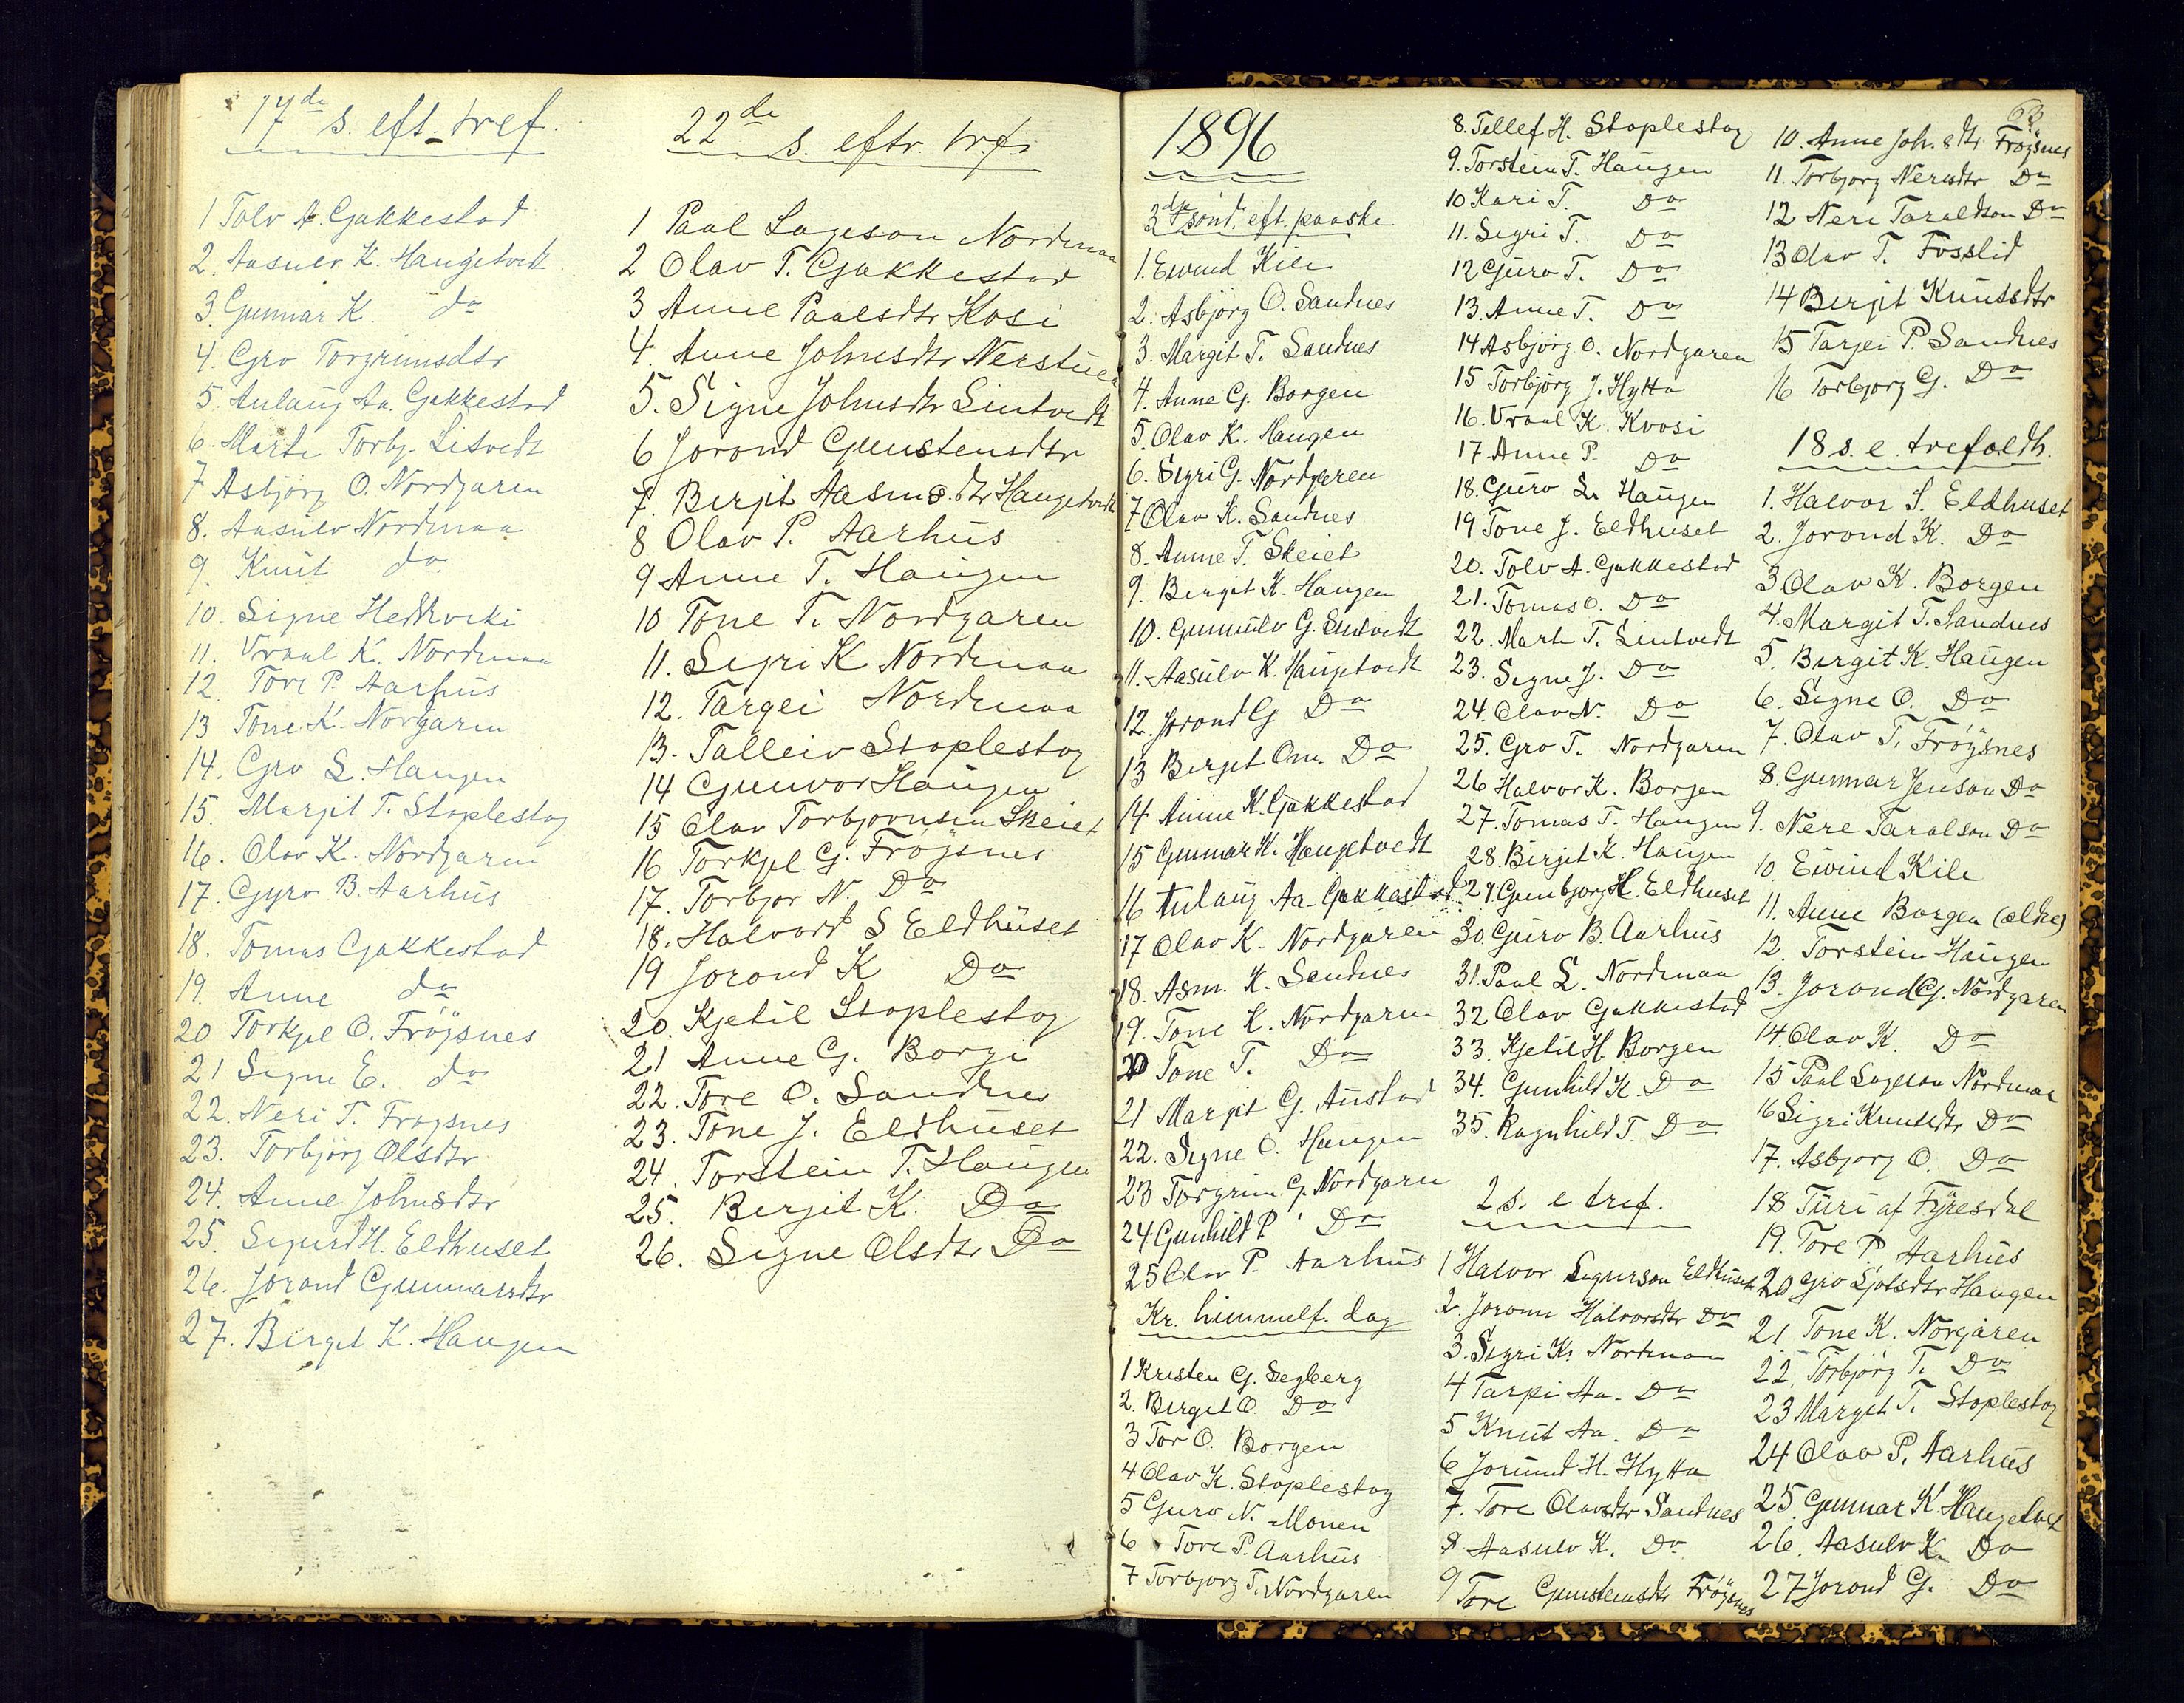 17de s. eft. tref.
1 Tolv A. Gjakkestad
2. Aasulv K. Haugetveit
3. Gunnar K. do
4. Gro Torgrimsdtr
5. Aulaug Aa. Gjakkestad
6. Marte Torbj. Litvedt
7 Asbjörg O. Nordgaren
8. Aasulv Nordmaa
9. Knut do
10. Signe
11. Vraal K. Nordmaa
12. Tore P. Aarhus
13 Tone K. Norgaren
14. Gro L. Haugen
15. Margit T. Stoplestog
16. Olav K. Nordgaren
17. Gyro B. Aarhus
18. Tomas Gjakkestad
19. Anne do
20 Torkjel O. Fröjsnes
21 Signe E. do
22. Neri T. Frojsnes
23. Torbjörg Olsdtr
24. Anne Johnsdtr
25. Sigurd H. Eldhuset
26. Jorand Gunnarsdtr
27. Birgit K. Haugen
22de s. eftr. trf.
1 Paal Lageson Nordmaa
2 Olav T. Gjakkestad
3 Anne Paalsdtr Kosi
4. Anne Johnsdtr Nerstuen
5. Signe Johnsdtr Lintvedt
6 Jorond Gunstensdtr
7. Berjit Aasms.dtr Haugetveit
8 Olav P. Aarhus
9 Anne T. Haugen
10 Tone T. Nordgaren
11. Sigri K Nordmaa
12. Targei Nordmaa
13. Talleiv Stoplestog
14 Gunvor Haugen
15 Olav Torbjornsen Skeiet
16 Torkjel G. Fröjsnes
17. Torbjor N. Do
18. Halvord S Eldhuset
19 Jorond K Do
20. Kjetil Stoplestog
21 Anne G. Borgi
22. Tore O. Sandnes
23. Tone J. Eldhuset
24. Torstein T. Haugen
25. Berjit K. Do
26. Signe Olsdtr Do
1896
3dje sönd. eft. paaske
1. Eivind Kile
2. Asbjörg O. Sandnes
3. Margit T. Sandnes
4. Anne G. Borgen
5. Olav K. Haugen
6. Sigri G. Nordgaren
7 Olav K. Sandnes
8. Anne T. Skeiet
9. Bergit K. Haugen
10. Gunnulv G. Lintvedt
11. Aasulv K. Haugetvedt
12. Jorond G Do
13 Berget Om. Do
14 Anne K. Gjakkestad
15 Gunnar K. Haugetvedt
16 Aulaug Aa. Gjakkestad
17 Olav K. Nordgaren
18. Asm. K. Sandnes
19. Tone K. Nordgaren
20 Tone T. Do
21 Margit G. Austad
22. Signe O. Haugen
23 Torgrim G. Nordgaren
24. Gunhild P. Do
25 Olav P. Aarhus
Kr. himmelf. dag
1 Kristen G. Segberg
2. Berget O. Do
3 Tor O. Borgen
4 Olav K. Stoplestog
5 Guro N. Monen
6 Tore P. Aarhus
7 Torbjorg T. Nordgaren
8. Tellef H. Stoplestog
9. Torstein T. Haugen
10 Kari T. Do
11. Segri T. Do
12 Guro T. Do
13. Anne T. Do
14 Asbjörg O. Nordgaren
15 Torbjörg J. Hytta
16. Vraal K. Kvosi
17. Anne P. Do
18. Guro L. Haugen
19 Tone J. Eldhuset
20. Tolv A. Gakkestad
21. Tomas O. Do
22. Mart T. Lintvedt
23. Signe J. Do
24. Olav N. Do
25. Gro T. Nordgaren
26 Halvor K. Borgen
27. Tomas T. Haugen
28. Birjit K. Haugen
29 Gunbjorg H. Eldhuset
30. Guro B. Aarhus
31. Paal L. Nordmaa
32 Olav Gakkestad
33. Kjetil H. Borgen
34. Gunhild K. Do
35. Ragnhild T. Do
2. s. e tref.
1 Halvor Sigurson Eldhuset
2. Joronn Halvorsdtr Do
3. Sigri K. Nordmaa
4 Tarpi Aa. Do
5 Knut Aa. Do
6 Jorund H. Hytta
7. Tore Olavsdtr Sandnes
8 Aasulv K. Do
9 Tore Gunstensdtr Fröjsnes
63
10. Anne Joh.sdtr Fröjsnes
11. Torbjorg Nerisdtr Do
12 Neri Taraldson Do
13 Olav T. Fosslid
14 Berjit Knutsdtr
15 Tarjei P. Sandnes
16 Torbjorg G. Do
18 s. e. trefoldh.
1. Halvor S. Eldhuset
2. Jorond K. Do
3 Olav K. Borgen
4. Margit T. Sandnes
5. Birgit K. Haugen
6. Signe O. Do
7. Olav T. Fröjsnes
8. Gunnar Jenson Do
9. Nere Taralson Do
10. Eivind Kile
11. Anne Borgen (ældre)
12. Torstein Haugen
13. Jorond G. Nordgaren
14. Olav K. Do
15 Paal Lageson Nordmaa
16 Sigri Knutsdtr Do
17. Asbjorg O. Do
18 Turi af Fyresdal
19. Tore P Aarhus
20 Gro Ljotsdtr Haugen
21. Tone K. Norgaren
22. Torbjörg T. Do
23 Margit T. Stoplestog
24 Olav P. Aarhus
25. Gunnar K Haugetvet
26. Aasulv K. Do
27 Jorond G. Do